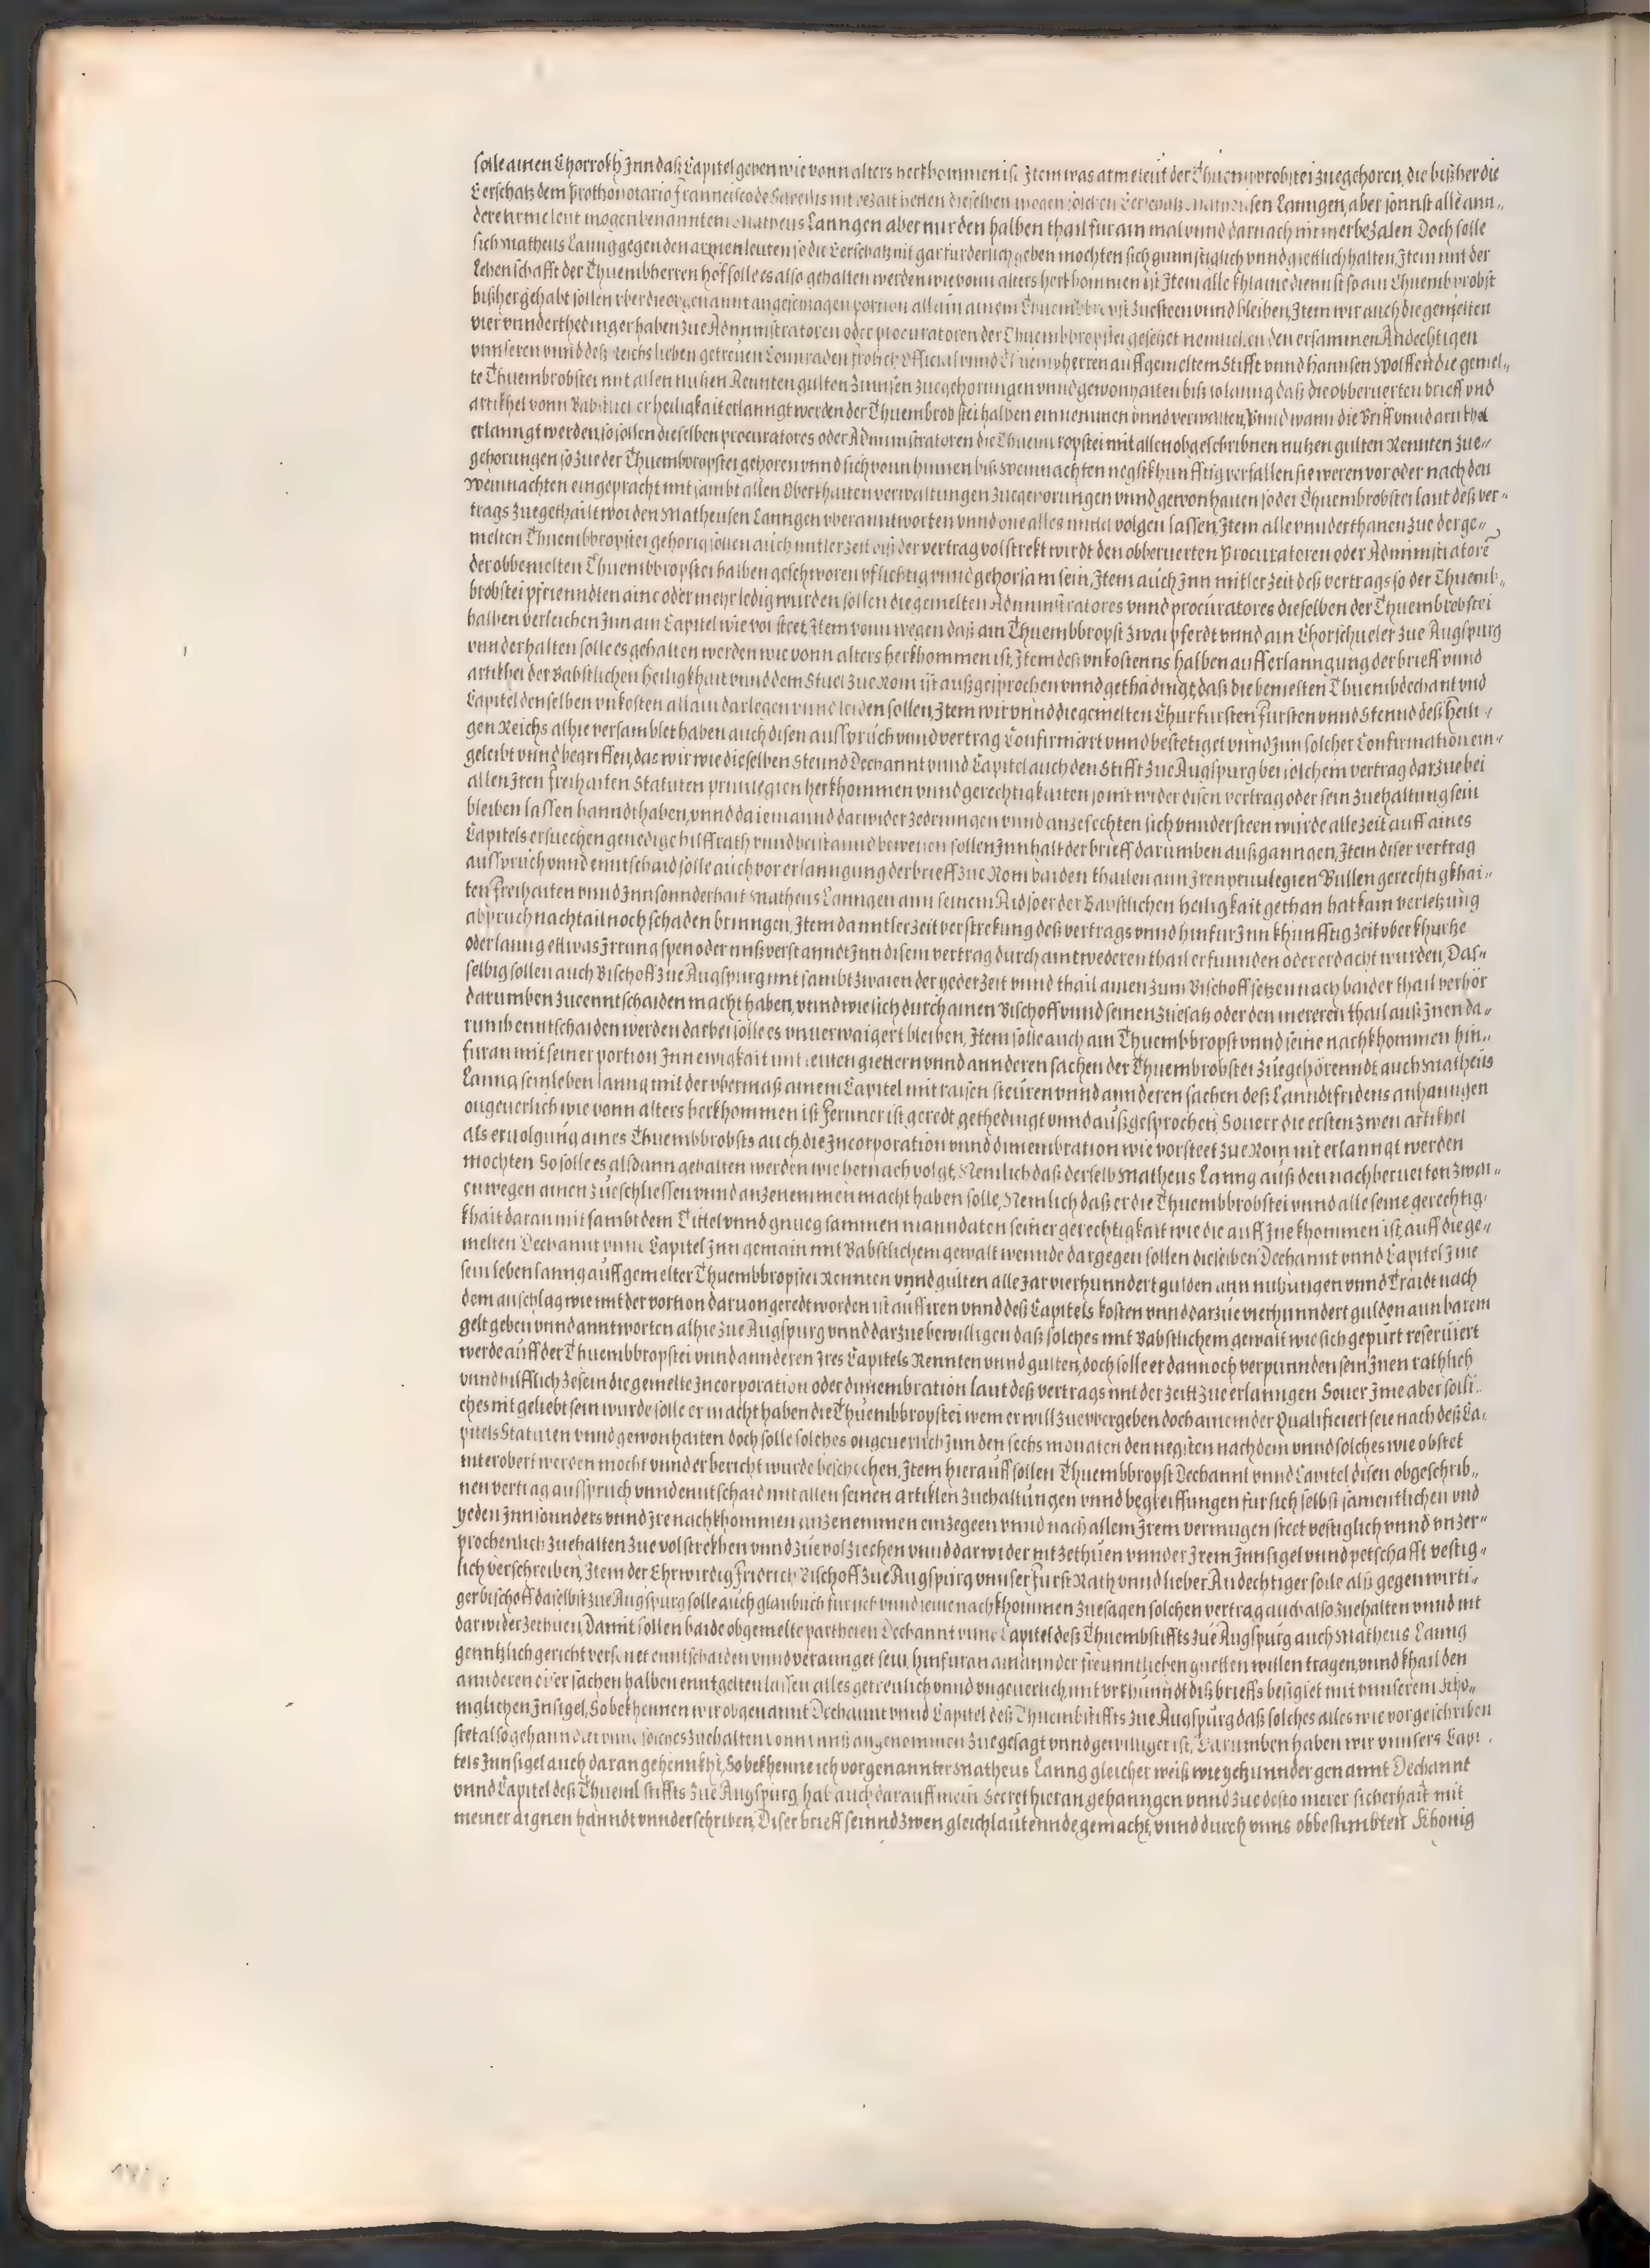 solle ainen Chorrokh Jnn daß Capitel geben wie vonn alters herkhommen ist Jtem was arme leut der Thuembbrobstei zuegehoren, die bißher die
Eerschatz dem Prothonotario Franncisco de nit bezalt hetten dieselben mogen solchen Eerschatz Matheusen Lanngen, aber sonnst alle ann„
dere arme leut mogen benanntem Matheus Lanngen aber nur den halben thail fur ain mal vnnd darnach nit mer bezalen Doch solle
sich Matheus Lanng gegen den armen leuten so die Eerschatz nit gar furderlich geben mochten sich gunnstiglich vnnd giettlich halten, Jtem mit der
Lehenschafft der Thuembherren hof solle es also gehalten werden wie vonn alters herkhommen ist Jtem alle khlaine diennst so ain Thuembbrobst
bißher gehabt sollen vber die orgenannt angeschlagen portion allain ainem Thuembbrobst zuesteen vnnd bleiben, Jtem wir auch die gemelten
vier vnnderthedinger haben zue Administratoren oder procuratoren der Thuembbropstei gesetzet nemlichen den ersammen Andechtigen
vnnseren vnnd deß Reichs lieben getreuen Connraden frolich Official vnnd Thuembherren auff gemeltem Stifft vnnd Hannsen Wolffen die gemel„
te Thuembrobstei mit allen nutzen Rennten gulten Zinnsen zuegehorungen vnnd gewonhaiten biß solanng daß die obberuerten brieff vnd
artikhel vonn Babstlicher heiligkait erlanngt werden der Thuembrobstei halben einnemmen vnnd verwalten, Vnnd wann die Briff vnnd artikhel
erlanngt werden, so sollen dieselben procuratores oder Administratoren die Thuembropstei mit allen obgeschribnen nutzen gulten Rennten zue„
gehorungen so zue der Thuembbropstei gehoren vnnd sich vonn hinnen biß Weinnachten negstkhunfftig verfallen sie weren vor oder nach den
Weinnachten eingepracht mit sambt allen Oberkhaiten verwaltungen zuegehorungen vnnd gewonhaiten so der Thuembrobstei laut deß ver„
trags zuegethailt worden Matheusen Lanngen vberanntworten vnnd one alles mittel volgen lassen, Jtem alle vnnderthanen zue der ge„
melten Thuembbropstei gehorig sollen auch mitlerzeit biß der vertrag volstrekt wirdt den obberuerten Procuratoren oder Administratorē
der obbemelten Thuembbropstei halben geschworen pflichtig vnnd gehorsam sein, Jtem auch Jnn mitler zeit deß vertrags so der Thuemb„
brobstei pfrienndten aine oder mehr ledig wurden sollen die gemelten Administratores vnnd procuratores dieselben der Thuembrobstei
halben verleichen Jnn ain Capitel wie vor steet, Jtem vonn wegen daß ain Thuembbropst zwai pferdt vnnd ain Chorschueler zue Augspurg
vnnderhalten solle es gehalten werden wie vonn alters herkhommen ist, Jtem deß vnkostenns halben auff erlanngung der brieff vnnd
artikhel der Babstlichen heiligkhait vnnd dem Stuel zue Rom ist außgesprochen vnnd gethadingt, daß die bemelten Thuembdechant vnd
Capitel denselben vnkosten allain darlegen vnnd leiden sollen, Jtem wir vnnd die gemelten Churfursten Fursten vnnd Stennd deß heili„
gen Reichs alhie versamblet haben auch disen ausspruch vnnd vertrag Confirmiert vnnd bestetiget vnnd Jnn solcher Confirmation ein„
geleibt vnnd begriffen, das wir wie dieselben Stennd Dechannt vnnd Capitel auch den Stifft zue Augspurg bei solchem vertrag darzue bei
allen Jren freihaiten Statuten priuilegien herkhommen vnnd gerechtigkaiten so nit wider disen vertrag oder sein zuehaltung sein
bleiben lassen hanndthaben, vnnd da iemannd darwider ze dringen vnnd anzefechten sich vnndersteen wurde alle zeit auff aines
Capitels ersuechen genedige hilff rath vnnd beistannd beweisen sollen Jnnhalt der brieff darumben außganngen, Jtem diser vertrag
ausspruch vnnd enntschaid solle auch vor erlanngung der brieff zue Rom baiden thailen ann Jren priuilegien Bullen gerechtigkhai„
ten Freihaiten vnnd Jnnsonnderhait Matheus Lanngen ann seinem Aid so er der Babstlichen heiligkait gethan hat kain verletzung
abpruch nachtail noch schaden bringen, Jtem da mitlerzeit verstrekung deß vertrags vnnd hinfur Jnn khunfftig zeit vber khurtze
oder lanng ettwas Jrrung spen oder mißverstanndt Jnn disem vertrag durch aintwederen thail erfunnden oder erdacht wurden, Das„
selbig sollen auch Bischoff zue Augspurg mit sambt zwaien der yeder zeit vnnd thail ainen zum Bischoff setzen nach baider thail verhör
darumben zue enntschaiden macht haben, vnnd wie sich durch ainen Bischoff vnnd seinen zuesatz oder den mereren thail auß Jnen da„
rumb enntschaiden werden darbei solle es vnuerwaigert bleiben, Jtem solle auch ain Thuembbropst vnnd seine nachkhommen hin„
furan mit seiner portion Jnn ewigkait mit leuten giettern vnnd annderen sachen der Thuembrobstei zuegehörenndt, auch Matheus
Lanng sein leben lanng mit der vbermaß ainem Capitel mit raisen steuren vnnd annderen sachen deß Lanndtfridens anhanngen
ongeuerlich wie vonn alters herkhommen ist Fernner ist geredt gethedingt vnnd außgesprochen, Souerr die ersten zwen artikhel
als eruolgung aines Thuembbrobsts auch die Jncorporation vnnd dimembration wie vorsteet zue Rom nit erlanngt werden
mochten So solle es alßdann gehalten werden wie hernach volgt, Nemlich daß derselb Matheus Lanng auß den nachberuerten zwai„
en wegen ainen zueschliessen vnnd anzenemmen macht haben solle, Nemlich daß er die Thuembbrobstei vnnd alle seine gerechtig„
khait daran mit sambt dem Tittel vnnd gnuegsammen manndaten seiner gerechtigkait wie die auff Jne khommen ist, auff die ge„
melten Dechannt vnnd Capitel Jnn gemain mit Babstlichem gewalt wennde dargegen sollen dieselben Dechannt vnnd Capitel Jme
sein leben lanng auff gemelter Thuembbropstei Rennten vnnd gulten alle Jar vierhunndert gulden ann nutzungen vnnd Traidt nach
dem anschlag wie mit der portion daruon geredt worden ist auff iren vnnd deß Capitels kosten vnnd darzue vierhunndert gulden ann barem
gelt geben vnnd anntworten alhie zue Augspurg vnnd darzue bewilligen daß solches mit Babstlichem gewalt wie sich gepurt reseruiert
werde auff der Thuembbropstei vnnd annderen Jres Capitels Rennten vnnd gulten, doch solle er dannoch verpunnden sein Jnen rathlich
vnnd hilfflich ze sein die gemelte Jncorporation oder dimembration laut deß vertrags mit der zeitt zue erlanngen Souer Jme aber solli„
ches nit geliebt sein wurde solle er macht haben die Thuembbropstei wem er will zue vbergeben doch ainem der Qualificiert seie nach deß Ca„
pitels Statuten vnnd gewonhaiten doch solle solches ongeuerlich Jnn den sechs monaten den negsten nach dem vnnd solches wie obstet
nit erobert werden mocht vnnd er bericht wurde beschechen, Jtem hierauff sollen Thuembbropst Dechannt vnnd Capitel disen obgeschrib„
nen vertrag ausspruch vnnd enntschaid mit allen seinen artiklen zuehaltungen vnnd begreiffungen fur sich selbst samentlichen vnd
yeden Jnnsonnders vnnd Jre nachkhommen anzenemmen einzegeen vnnd nach allem Jrem vermugen steet vestiglich vnnd vnzer„
prochenlich zuehalten zue volstrekhen vnnd zue volziechen vnnd darwider nit zethuen vnnder Jrem Jnnsigel vnnd petschafft vestig„
lich verschreiben, Jtem der Ehrwirdig Fridrich Bischoff zue Augspurg vnnser Furst Rath vnnd lieber Andechtiger solle alß gegenwirti„
ger bischoff daselbst zue Augspurg solle auch glaublich fur sich vnnd seine nachkhommen zuesagen solchen vertrag auch also zuehalten vnnd nit
darwider zethuen, Damit sollen baide obgemelte partheien Dechannt vnnd Capitel deß Thuembstiffts zue Augspurg auch Matheus Lanng
genntzlich gericht versuenet enntschaiden vnnd verainiget sein, hinfuran ainannder freunntlichen guetten willen tragen, vnnd khail den
annderen diser sachen halben enntgelten lassen alles getreulich vnnd vngeuerlich, mit vrkhunndt diß brieffs besiglet mit vnnserem Kho„
niglichen Jnsigel, So bekhennen wir obgenannt Dechannt vnnd Capitel deß Thuembstiffts zue Augspurg daß solches alles wie vorgeschriben
stet also gehanndlet vnnd solches zuehalten vonn vnnß angenommen zuegesagt vnnd gewilliget ist, Darumben haben wir vnnsers Capi„
tels Jnnsigel auch daran gehennkht, So bekhenne ich vorgenannter Matheus Lanng gleicher weiß wie yetzunnder genannt Dechannt
vnnd Capitel deß Thuembstiffts zue Augspurg, hab auch darauff mein Secret hieran gehanngen vnnd zue desto merer sicherhait mit
meiner aignen hanndt vnnderschriben, Diser brieff seinnd zwen gleichlautennde gemacht, vnnd durch vnns obbestimbten Khonig